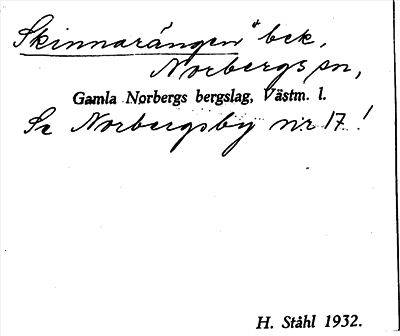 Skinnarängen" bek.
Norbergs sn,
Gamla Norbergs bergslag, Västm. l.
Se Norbergsby nr 17!
H. Ståhl 1932.